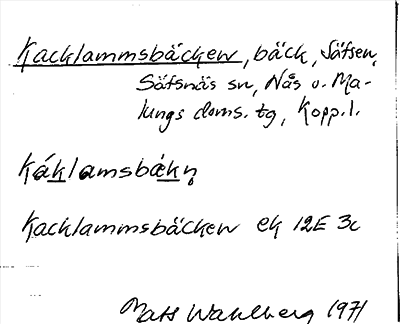 Kacklammsbäcken, bäck, Säfsen,
Säfsnäs sn, Nås o. Ma-
lungs doms. tg, Kopp. l.
Káklamsbä̀kn̥
Kacklammsbäcken ek 12E 3c
Mats Wahlberg 1971